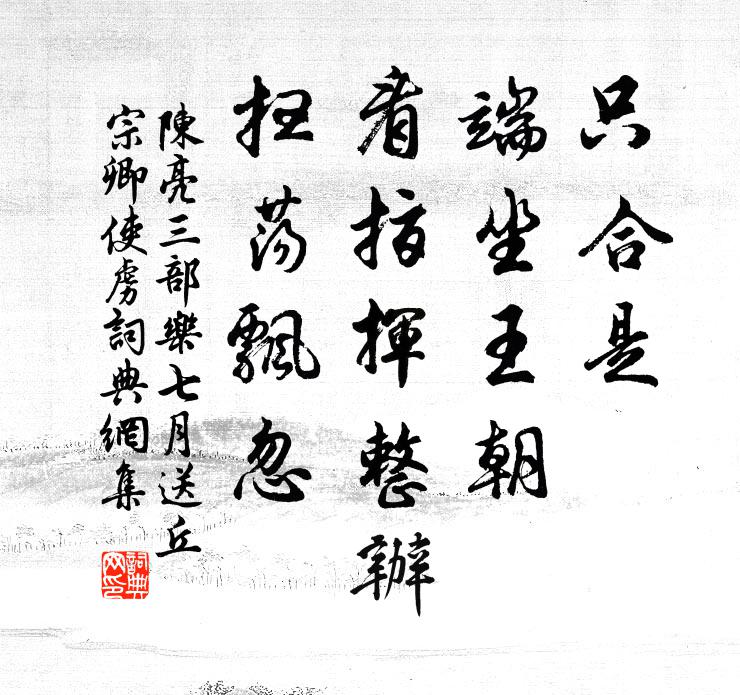 只合是
端坐王朝
看指揮整辦
扫荡飄忽
陳亮三部樂七月送丘
宗卿使虜詞典網集
詞典
网印